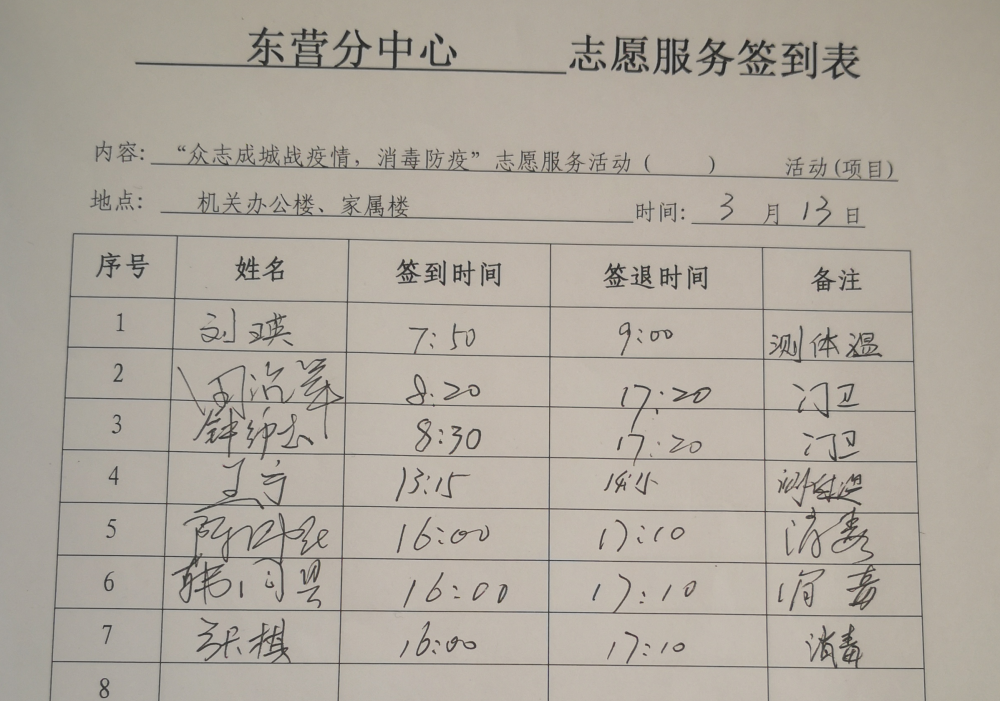 东营分中心 志愿服务签到表
内容: “众志成城战疫情，消毒防疫”志愿服务活动（ ） 活动(项目)
地点: 机关办公楼、家属楼 时间: 3 月 13 日
序号 姓名 签到时间 签退时间 备注
1 刘瑛 7:50 9:00 测体温
2 8:20 17:20 门卫
3 8:30 17:20 门卫
4 王宁 13:15 14:15 测体温
5 16:00 17:10 消毒
6 韩 16:00 17:10 消毒
7 张棋 16:00 17:10 消毒
8